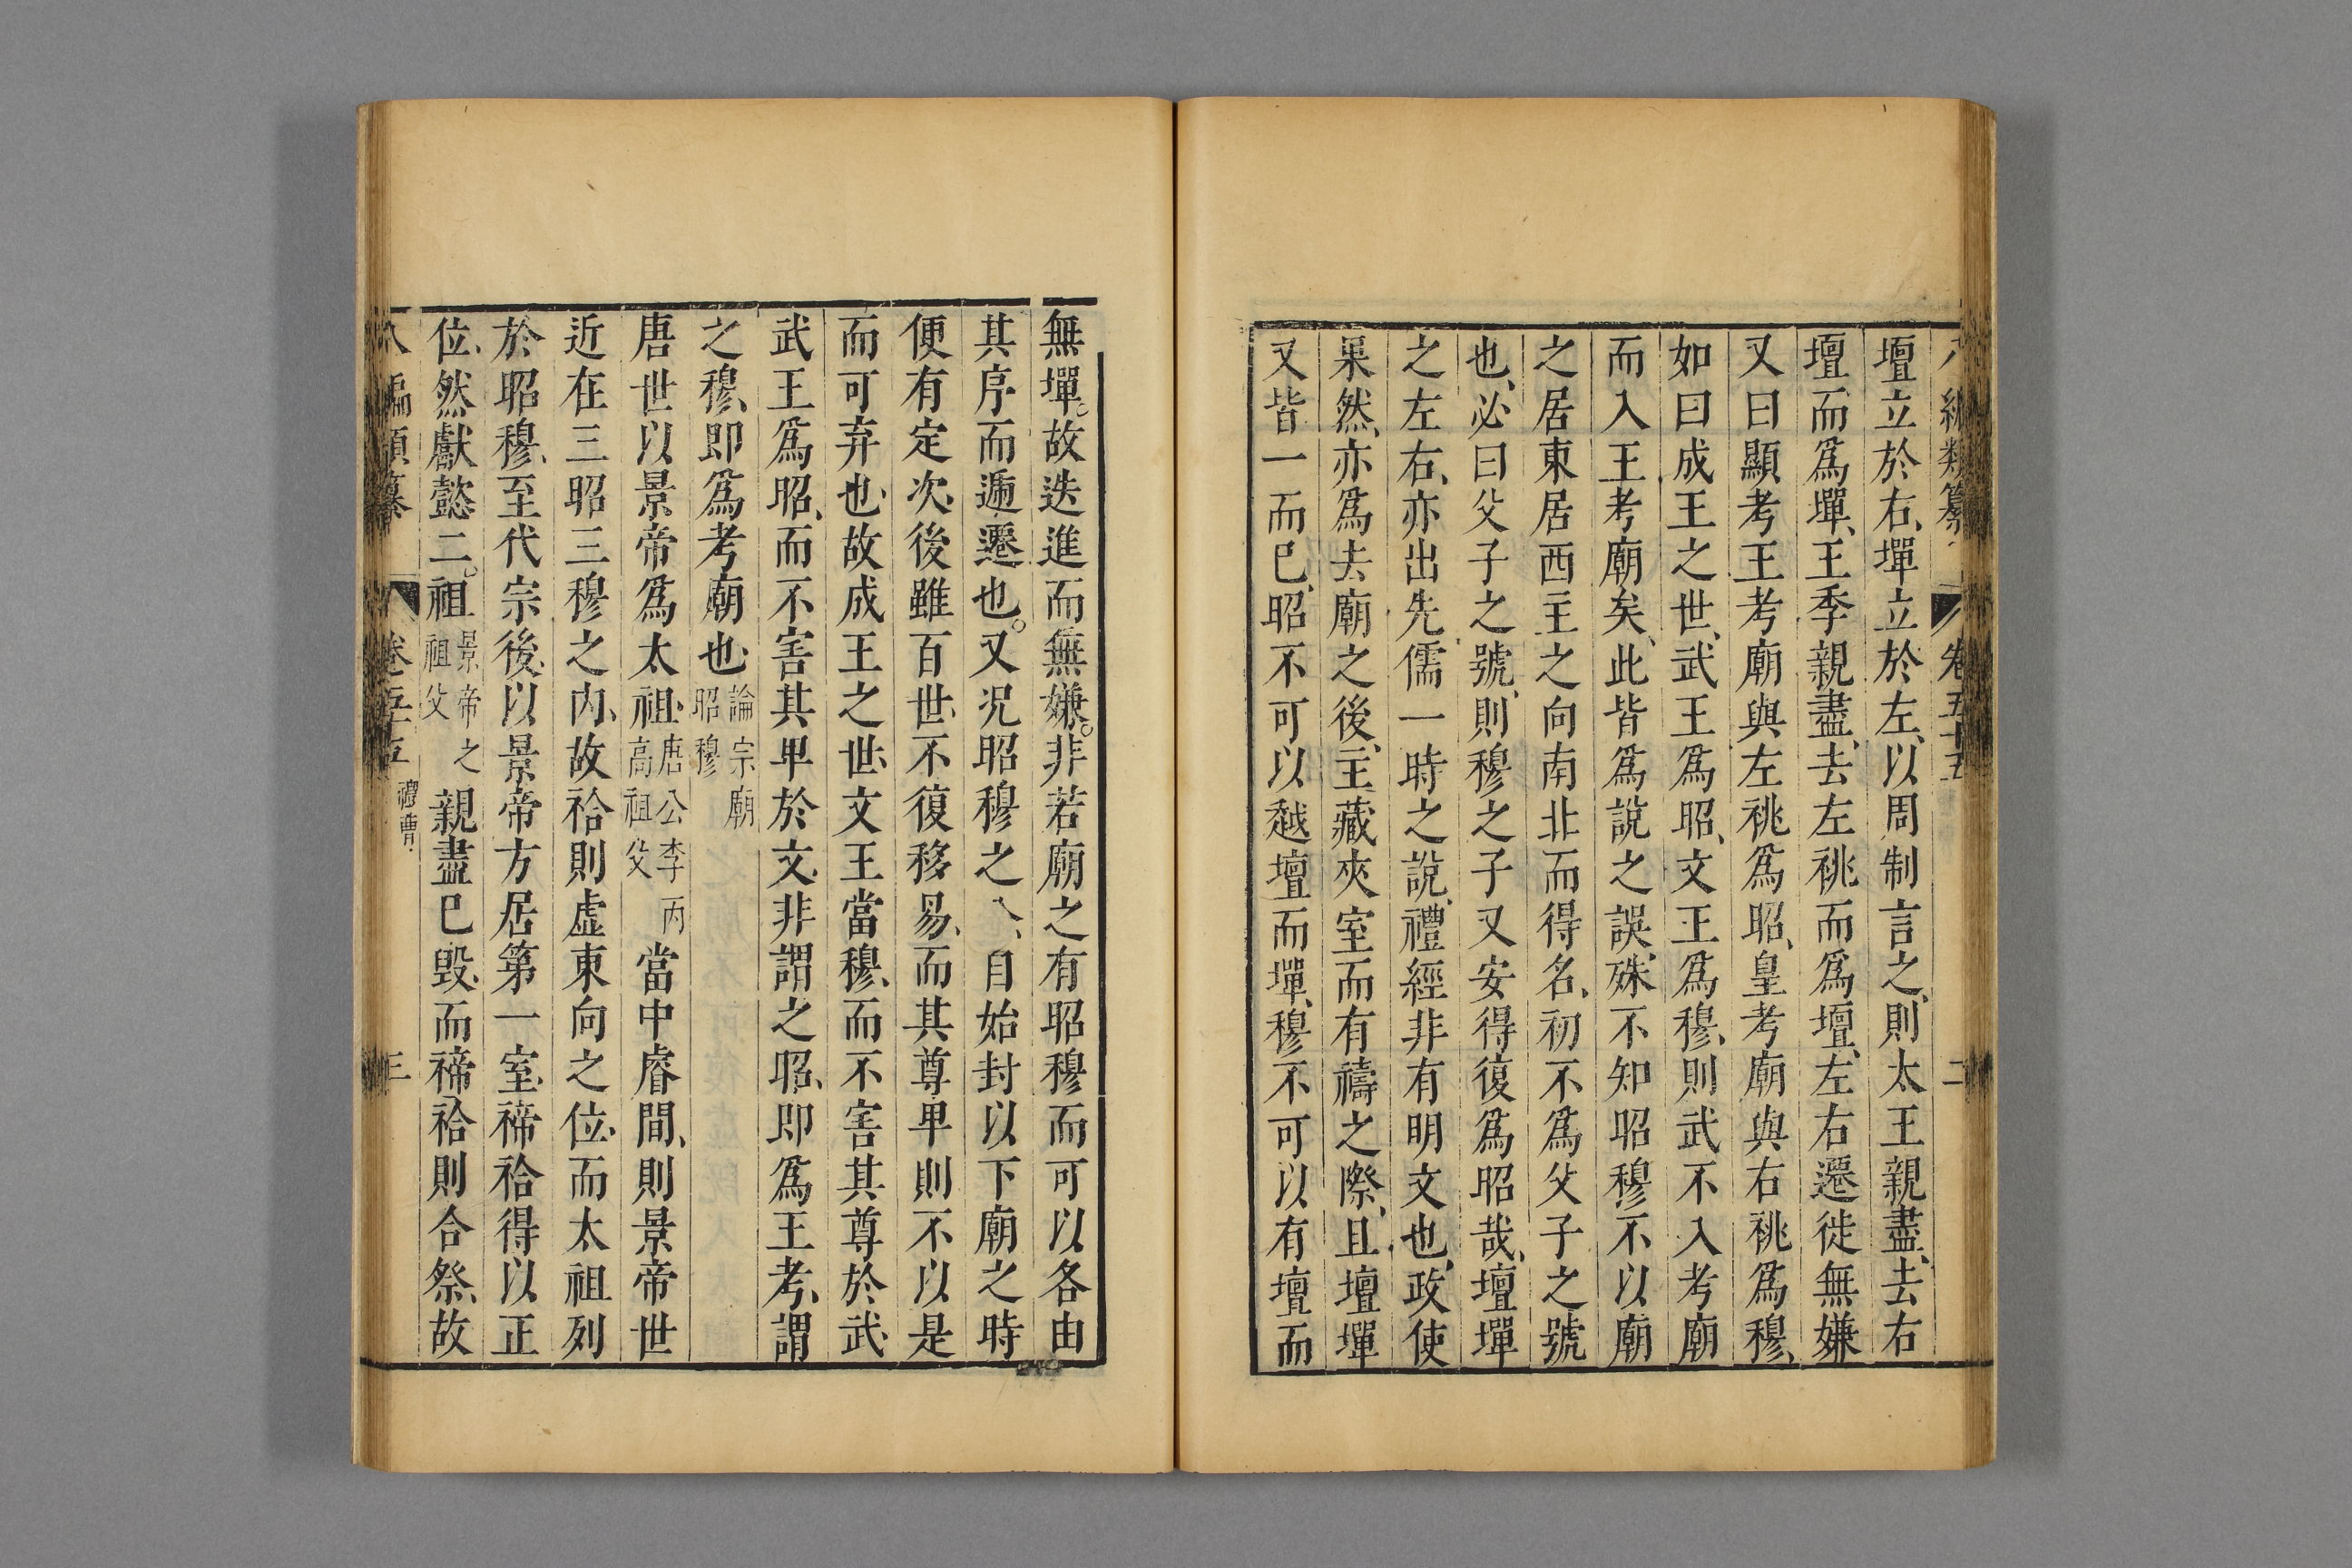 八編類纂 卷五十五 二
壇立於右、墠立於左、以周制言之、則太王親盡、去右
壇而爲墠、王季親盡、去左祧而爲壇、左右遷徙無嫌
又曰顯考王考廟與左祧爲昭、皇考廟與右祧爲穆、
如曰成王之世、武王爲昭、文王爲穆、則武不入考廟
而入王考廟矣、此皆爲說之誤、殊不知昭穆不以廟
之居東居西主之向南北而得名、初不爲父子之號
也、必曰父子之號、則穆之子又安得復爲昭哉、壇墠
之左右、亦出先儒一時之說、禮經非有明文也、政使
果然、亦爲去廟之後、主藏夾室而有禱之際、且壇墠
又皆一而已、昭不可以越壇而墠、穆不可以有壇而
無墠。故迭進而無嫌。非若廟之有昭穆而可以各由
其序而遞遷也。又況昭穆之 、自始封以下廟之時
便有定次、後雖百世、不復移易、而其尊卑則不以是
而可弃也、故成王之世、文王當穆、而不害其尊於武、
武王爲昭、而不害其卑於文、非謂之昭、即爲王考、謂
之穆、即爲考廟也、論宗廟昭穆
唐世以景帝爲太祖、唐公李丙高祖父當中睿間、則景帝世
近在三昭三穆之内、故祫則虛東向之位、而太祖列
於昭穆、至代宗後、以景帝方居第一室、禘祫得以正
位、然獻懿二。祖景帝之祖父親盡已毀、而禘祫則合祭、故
八編類纂 卷五十五 禮曹 三